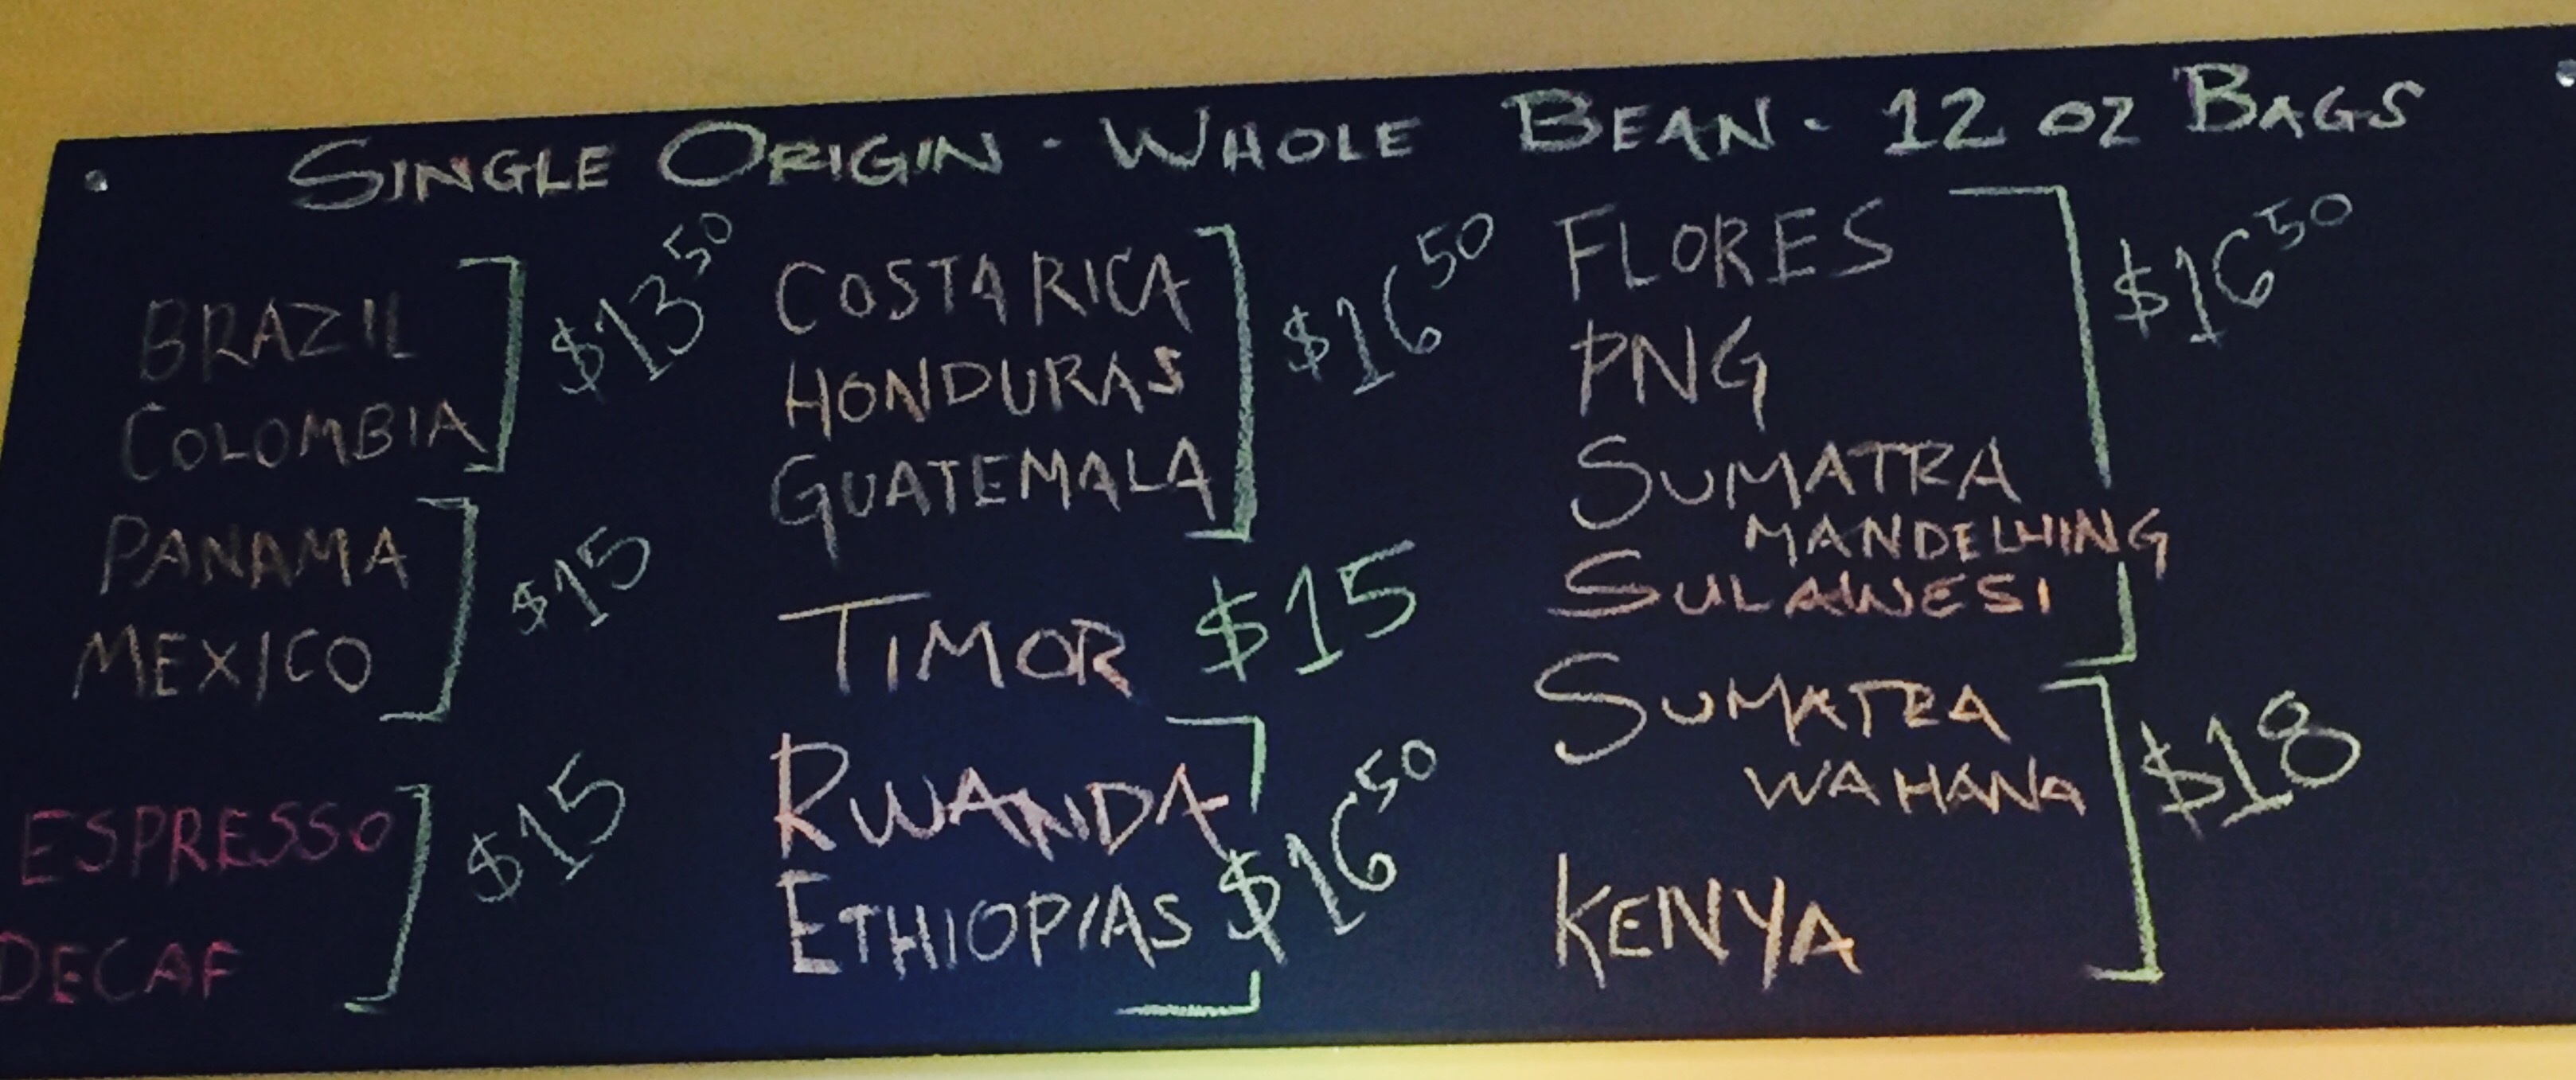 SINGLE ORIGIN - WHOLE BEAN - 12 OZ BAGS
BRAZIL
COLOMBIA
$13 50
PANAMA
MEXICO
$15
ESPRESSO
DECAF
$15
COSTA RICA
HONDURAS
GUATEMALA
$16 50
TIMOR $15
RWANDA
ETHIOPIAS
$16 50
FLORES
PNG
SUMATRA
MANDELHING
SULAWESI
$16 50
SUMATRA
WAHANA
KENYA
$18